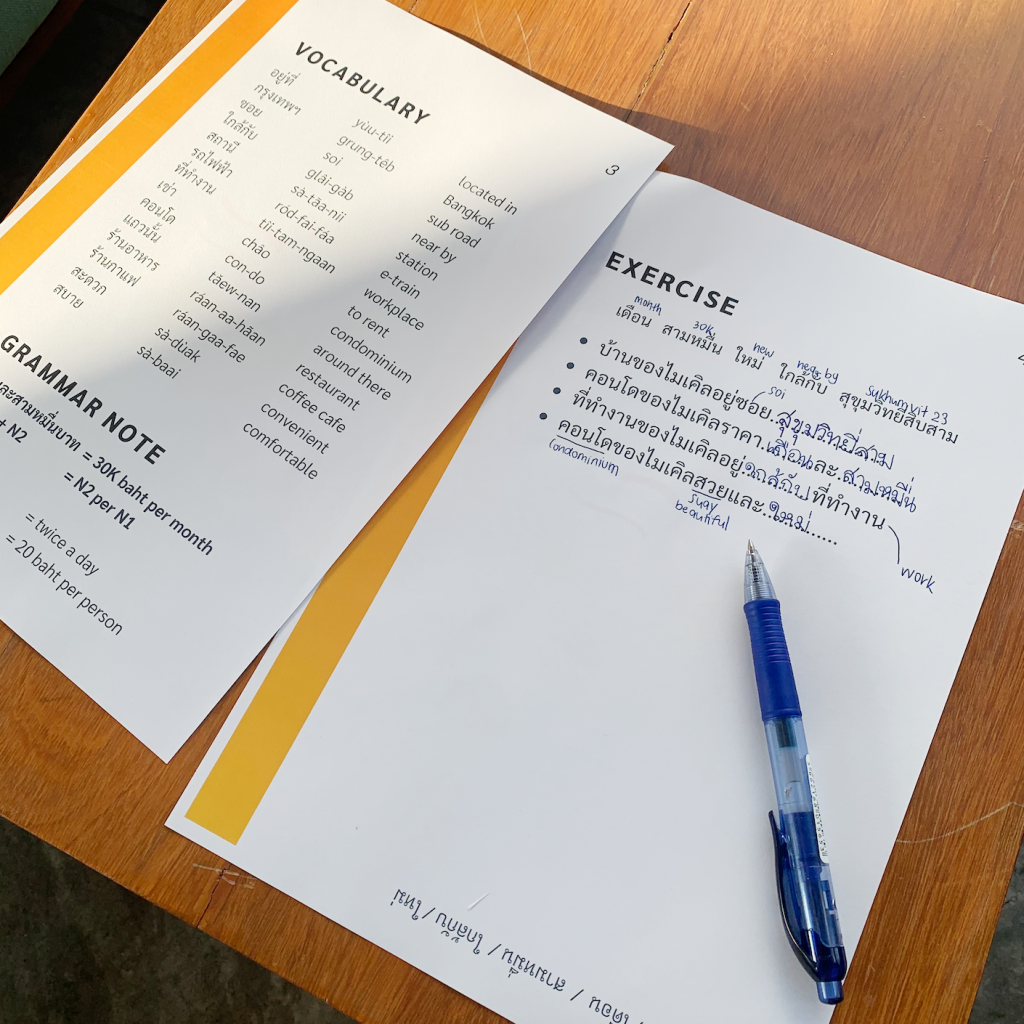 VOCABULARY
3
อยู่ที่ yùu-tîi located in
กรุงเทพฯ grung-têb Bangkok
ซอย soi sub road
ใกล้กับ glâi-gàb near by
สถานี sà-tăa-nii station
รถไฟฟ้า ród-fai-fáa e-train
ที่ทำงาน tîi-tam-ngaan workplace
เช่า châo to rent
คอนโด con-do condominium
แถวนั้น tăew-nan around there
ร้านอาหาร ráan-aa-hăan restaurant
ร้านกาแฟ ráan-gaa-fae coffee cafe
สะดวก sà-dùak convenient
สบาย sà-baai comfortable
GRAMMAR NOTE
ละสามหมื่นบาท = 30K baht per month
+ N2 = N2 per N1
= twice a day
= 20 baht per person
EXERCISE
4
month 30K new near by Sukhumvit 23
เดือน สามหมื่น ใหม่ ใกล้กับ สุขุมวิทยี่สิบสาม
soi
บ้านของไมเคิลอยู่ซอย..สุขุมวิทยี่สาม
คอนโดของไมเคิลราคา.เดือนละ.สามหมื่น
ที่ทำงานของไมเคิลอยู่.ใกล้กับ.ที่ทำงาน
คอนโดของไมเคิลสวยและ..ใหม่......
condominium
suay
beautiful
work
/ เดือน / สามหมื่น / ใกล้กับ / ใหม่